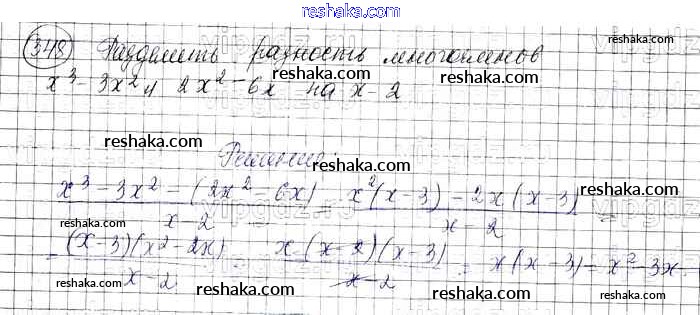 reshaka.com
348 Разделить разность многочленов
x³ - 3x² и 2x² - 6x на x - 2
reshaka.com reshaka.com
reshaka.com reshaka.com
Решение:
(x³ - 3x² - (2x² - 6x)) / (x - 2) = (x²(x - 3) - 2x(x - 3)) / (x - 2) =
reshaka.com reshaka.com reshaka.com
= ((x - 3)(x² - 2x)) / (x - 2) = (x(x - 2)(x - 3)) / (x - 2) = x(x - 3) = x² - 3x.
reshaka.com reshaka.com reshaka.com
reshaka.com